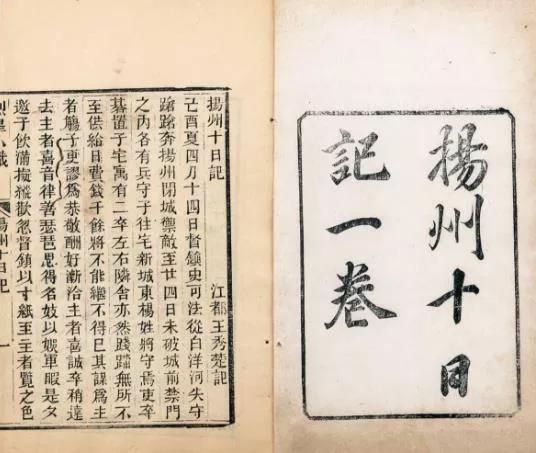 揚州十日
記一卷
揚州十日記
江都王秀楚記
己酉夏四月十四日督鎮史可法從白洋河失守
踉蹌奔揚州閉城禦敵至廿四日未破城前禁門
之內各有兵守于往宅新城東楊姓將守焉吏卒
碁置予宅寓有二卒左右隣舍亦然踐蹋無所不
至供給日費錢千餘將不能繼不得已共謀為主
者觴予更謬為恭敬酬好漸洽主者喜誡卒稍遠
去主者喜音律善琵琶思得名妓以娛軍暇是夕
邀予飲滿擬縱歡忽督鎮以寸紙至主者覽之色
揚州十日記
一